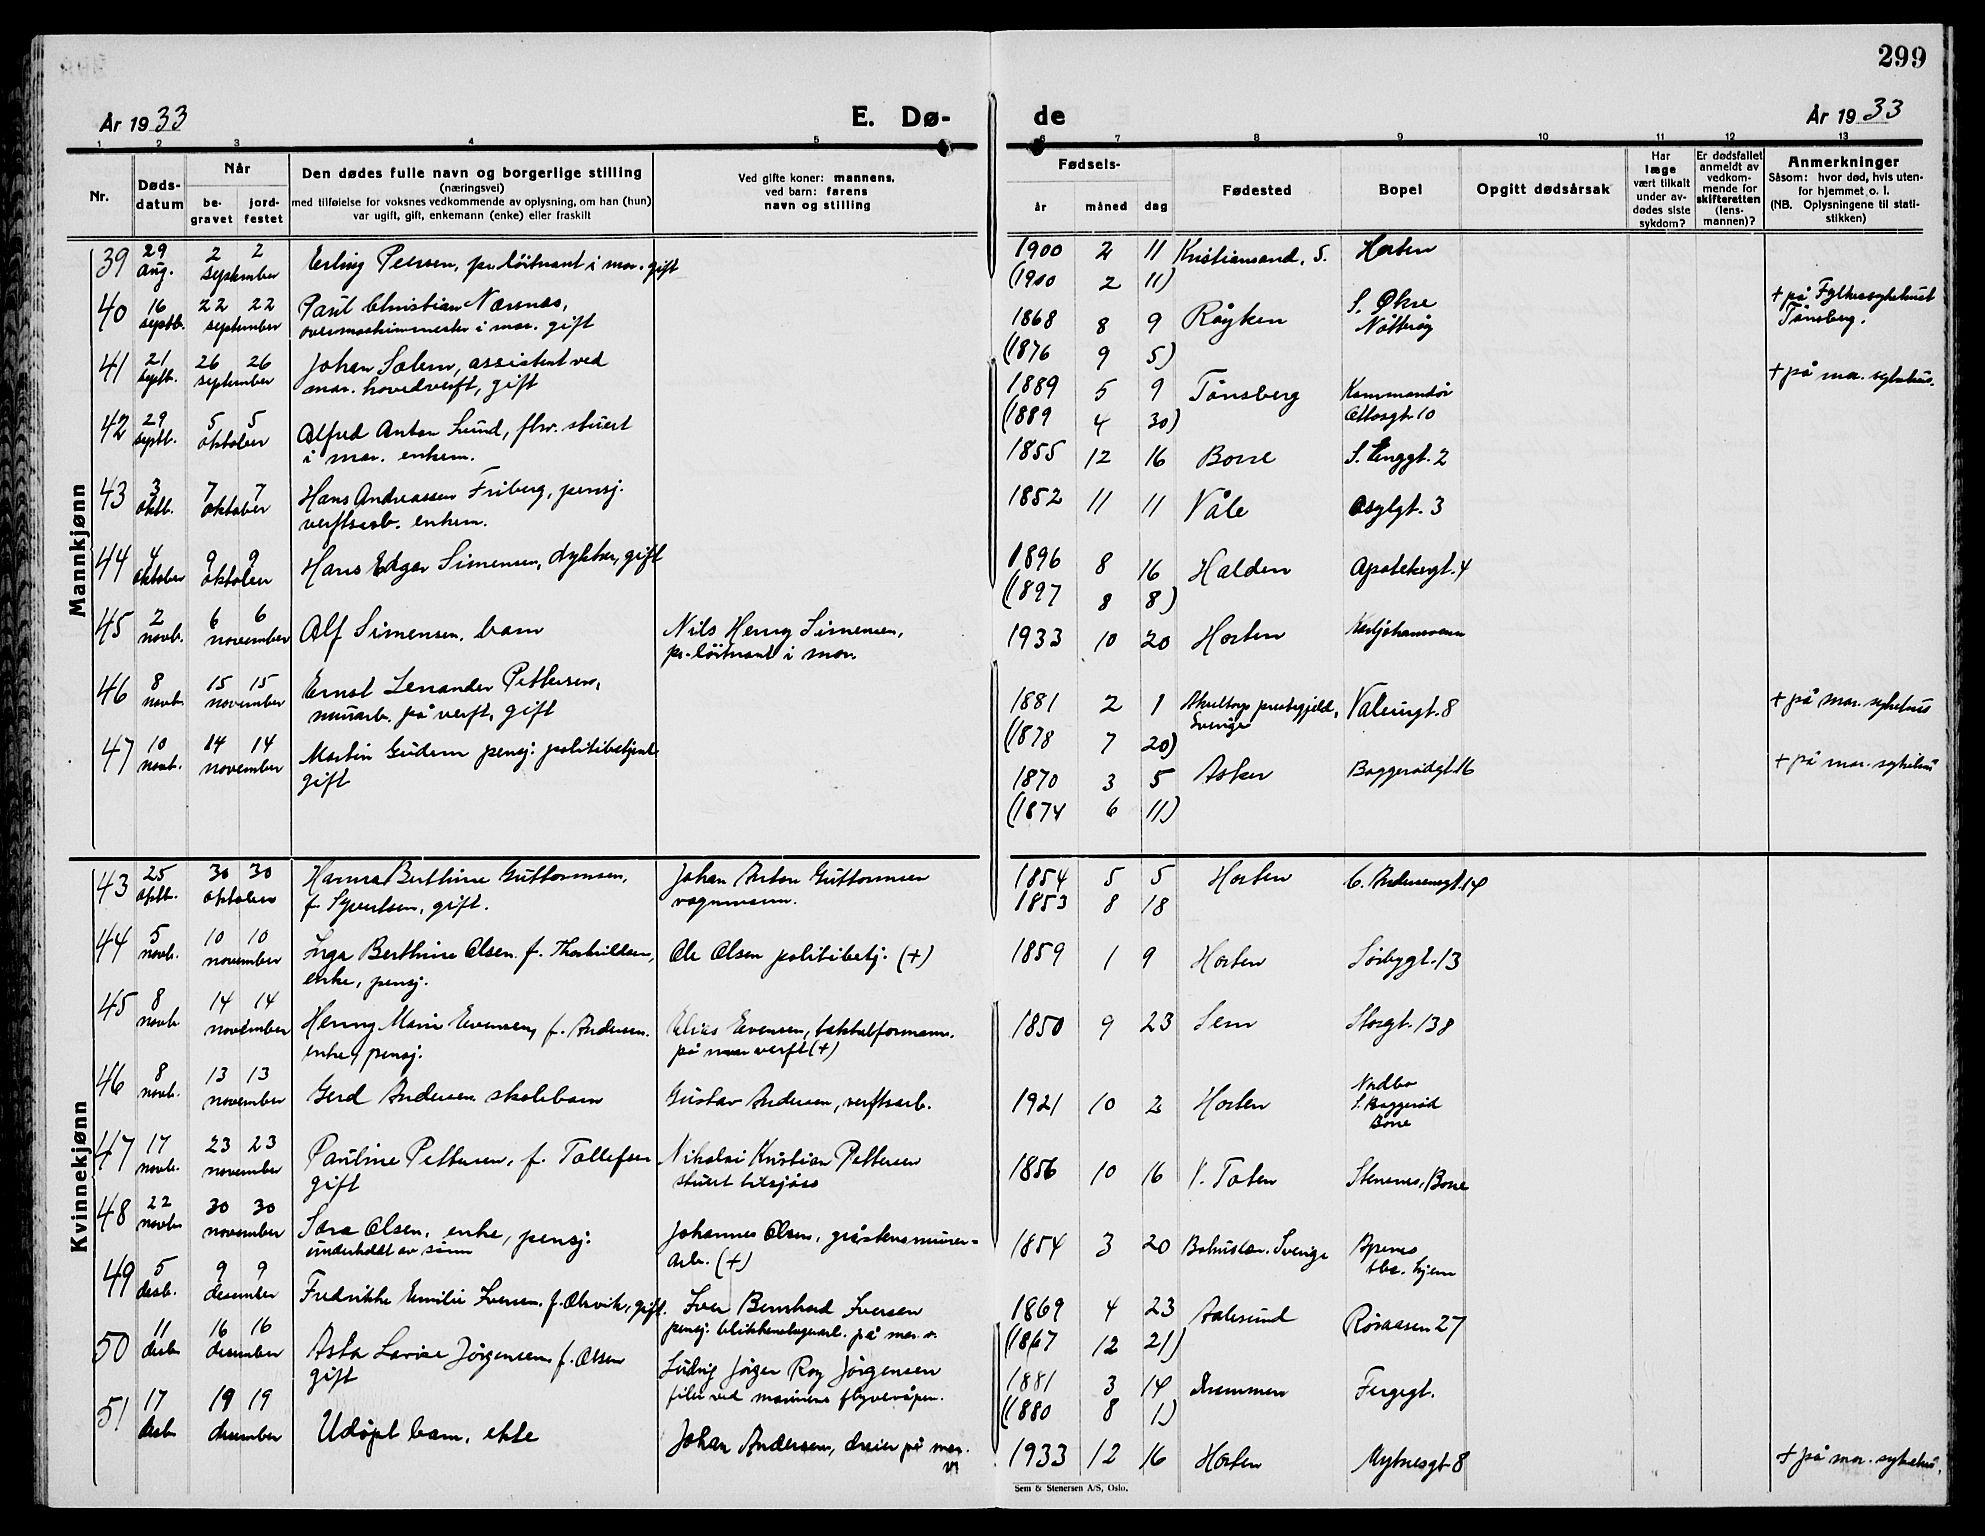 299
År 1933
E. Dø-
de
År 1933
1 2 3 4 5 6 7 8 9 10 11 12 13
Nr.
Døds-
datum
Når
be-
gravet
jord-
festet
Den dødes fulle navn og borgerlige stilling
(næringsvei)
med tilføielse for voksnes vedkommende av oplysning, om han (hun)
var ugift, gift, enkemann (enke) eller fraskilt
Ved gifte koner: mannens,
ved barn: farens
navn og stilling
Fødsels-
år måned dag
Fødested
Bopel
Opgitt dødsårsak
Har
læge
vært tilkalt
under av-
dødes siste
sykdom?
Er dødsfallet
anmeldt av
vedkom-
mende for
skifteretten
(lens-
mannen)?
Anmerkninger
Såsom: hvor død, hvis uten-
for hjemmet o. l.
(NB. Oplysningene til stati-
stikken)
Mannkjønn
39 29 2 2 Erling Petersen, pr. löitnant i mar. gift 1900 2 11 Kristiansand. S. Horten
aug. september (1900 2 11)
40 16 22 22 Paul Christian Nærsnes, 1868 8 9 Røyken S. Økre + på Fylkessykehuset
septb. september overmaskinmester i mar. gift (1876 9 5) Nøtterøy Tønsberg.
41 21 26 26 Johan Solem, assistent ved 1889 5 9 Tønsberg Kommandør + på mar. sykehus.
septb. september mar. hovedverft, gift (1889 4 30) Ottosgt. 10
42 29 5 5 Alfred Anton Lund, fhv. stuert 1855 12 16 Borre S. Enggt. 2
septb. oktober i mar. enkem.
43 3 7 7 Hans Andreassen Friberg, pensj. 1852 11 11 Våle Asylgt. 3
oktb. oktober verftsarb. enkem.
44 4 9 9 Hans Edgar Simensen, dykker, gift 1896 8 16 Halden Apotekergt. 4
oktober oktober (1897 8 8)
45 2 6 6 Alf Simensen, barn Nils Henry Simensen, 1933 10 20 Horten Karljohansvern
novb. november pr. löitnant i mar.
46 8 15 15 Ernst Lenander Pettersen, 1881 2 1 prestegjeld, Valeurgt. 8 + på mar. sykehus
novb. november murarb. på verft, gift (1878 7 20) Sverige
47 10 14 14 Martin Gudem pensj. politibetjent 1870 3 5 Asker Baggerødgt. 16 + på mar. sykehus
novb. november gift (1874 6 11)
Kvinnekjønn
43 25 30 30 Hanna Berthine Guttormsen, Johan Anton Guttormsen 1854 5 5 Horten C. Andersensgt. 14
oktb. oktober f. Syvertsen, gift. vognmann. 1853 8 18
44 5 10 10 Inga Berthine Olsen f. Thorkildsen, Ole Olsen politibetj. (+) 1859 1 9 Horten Sørbygt. 13
novb. november enke, pensj.
45 8 14 14 Henny Marie Evensen, f. Andersen. Elias Evensen, takkelformann. 1850 9 23 Sem Storgt. 138
novb november enke, pensj. på mar verft (+)
46 8 13 13 Gerd Andersen skolebarn Gustav Andersen, verftsarb. 1921 10 2 Horten Nordbo
novb. november S. Baggerød
Borre
47 17 23 23 Pauline Pettersen, f. Tollefsen Nikolai Kristian Pettersen 1856 10 16 V. Toten Stensnes, Borre
novb. november gift stuert tilsjøss
48 22 30 30 Sara Olsen, enke, pensj. Johannes Olsen, gråstensmurer- 1854 3 20 Bohuslän. Sverige
novb november underholdt av sønn arb. (+) hjem
49 5 9 9 Fredrikke Emilie Iversen. f. Alsvik, gift. Iver Bernhard Iversen 1869 4 23 Aalesund Røraasen 27
desb. desember pensj. blikkenslagerarb. på mar. v. (1867 12 21)
50 11 16 16 Asta Lovise Jörgensen f. Olsen Ludvig Jörgen Roy Jörgensen 1881 3 14 Drammen Fergegt.
desb desember gift filer ved marinens flyvevåpen. (1880 8 1)
51 17 19 19 Udöpt barn, ekte Johan Andersen, dreier på mar. 1933 12 16 Horten Myhresgt. 8 + på mar. sykehus.
desb desember v.
Sem & Stenersen A/S, Oslo.